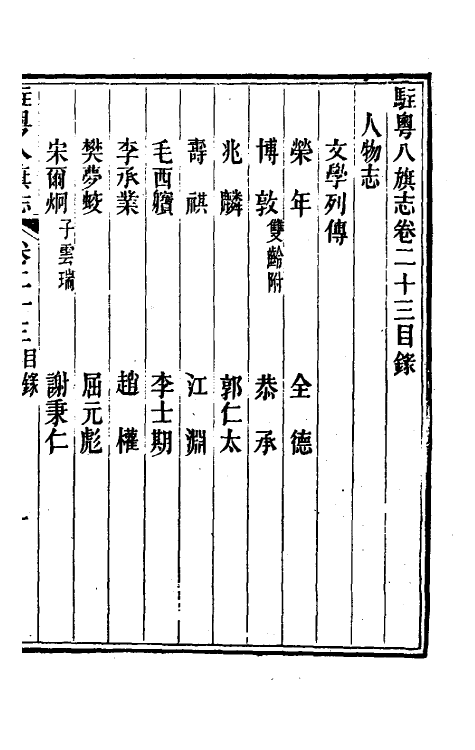 駐粵八旗志卷二十三目錄
人物志
文學列傳
榮年 全德
博敦雙齡附 恭承
兆麟 郭仁太
壽祺 江淵
毛西瓚 李士期
李承業 趙權
樊夢蛟 屈元彪
宋爾炯子雲瑞 謝秉仁
駐粵八旗志 卷二十三目錄 一